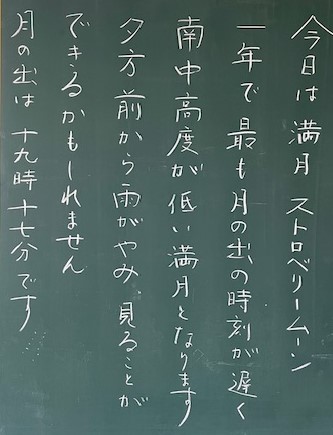 今日は満月 ストロベリームーン
一年で最も月の出の時刻が遅く
南中高度が低い満月となります
夕方前から雨がやみ、見ることが
できるかもしれません
月の出は 十九時十七分です